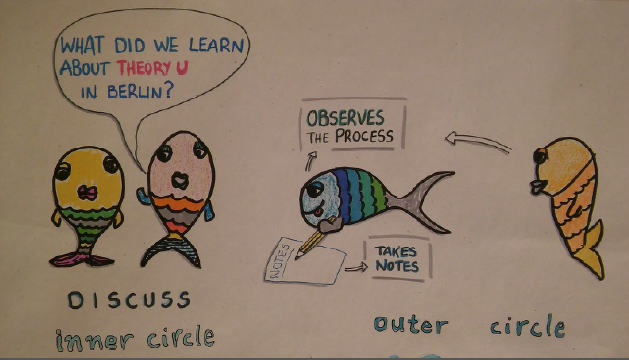 WHAT DID WE LEARN
ABOUT THEORY U
IN BERLIN?
OBSERVES
THE PROCESS
NOTES
TAKES
NOTES
DISCUSS
inner circle
outer circle